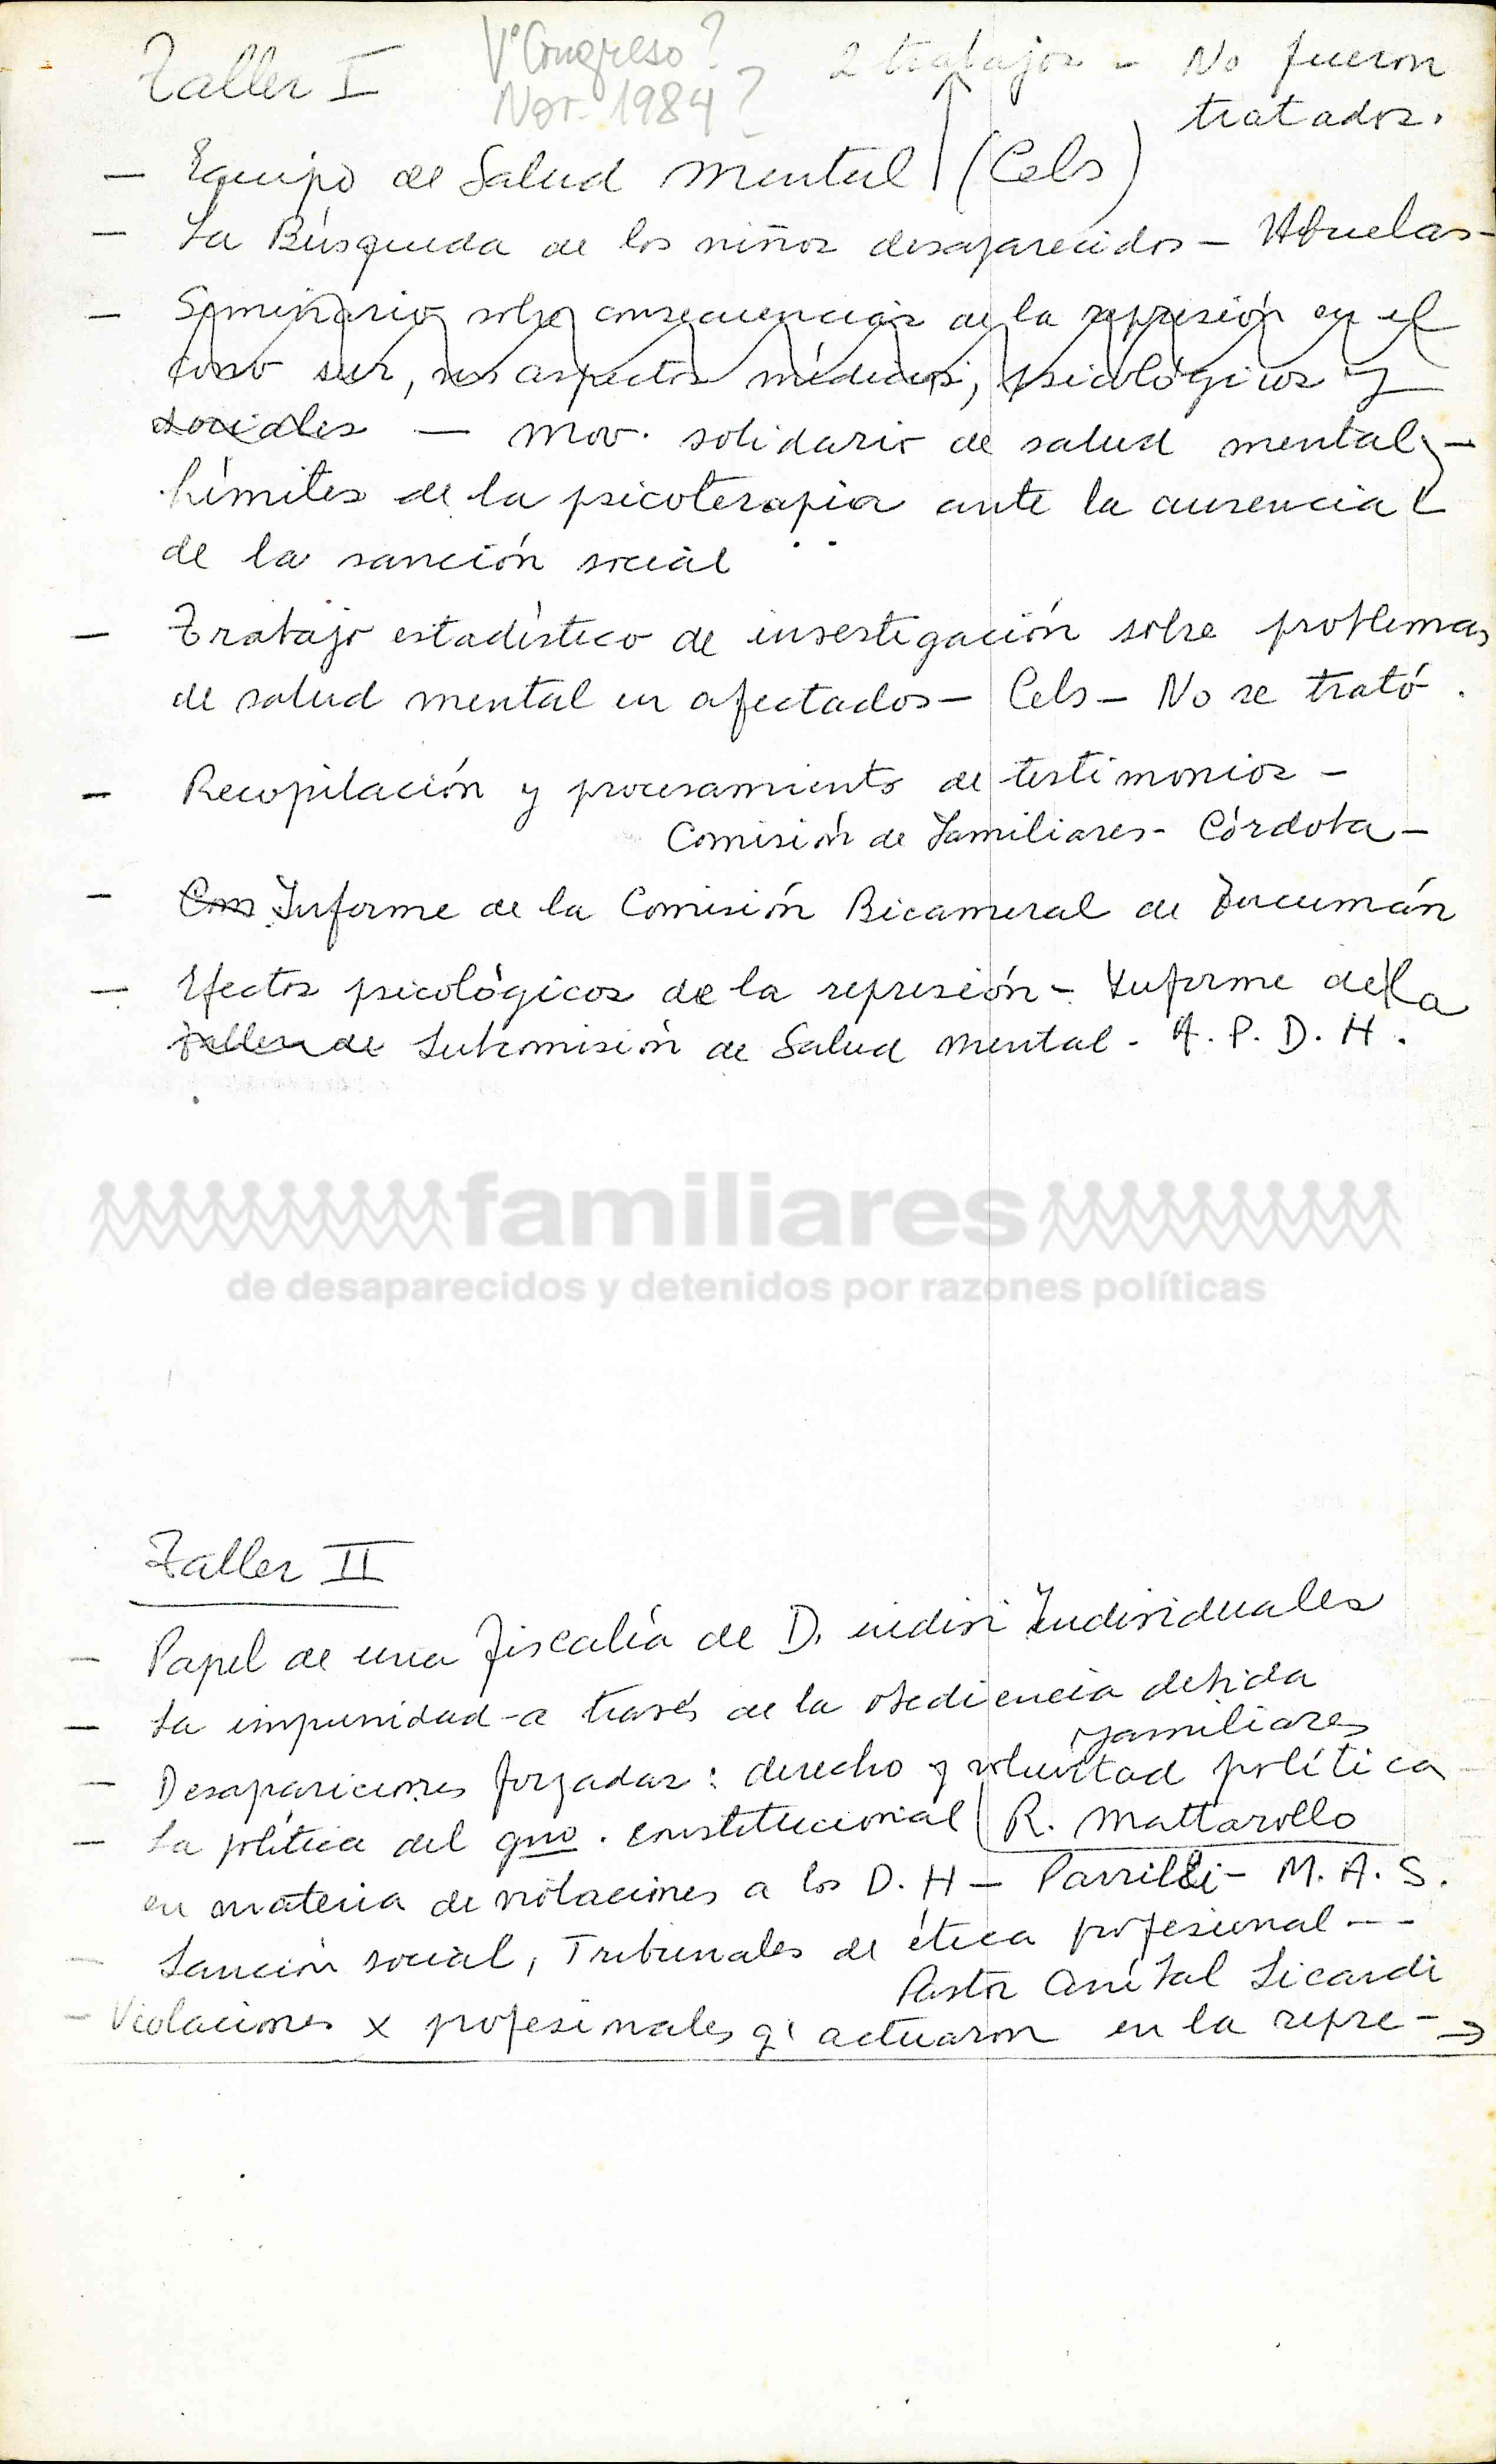 Taller I
Vº Congreso?
Nov. 1984?
2 trabajos - No fueron
tratados.
- Equipo de Salud Mental (Cels)
- La Búsqueda de los niños desaparecidos - Abuelas -
- Seminario sobre consecuencias de la represión en el
cono sur, sus aspectos médicos, psicológicos y
sociales - Mov. solidario de salud mental -
Límites de la psicoterapia ante la ausencia
de la sanción social
- Trabajo estadístico de investigación sobre problemas
de salud mental en afectados - Cels - No se trató.
- Recopilación y procesamiento de testimonios -
Comisión de Familiares - Córdoba -
- Com Informe de la Comisión Bicameral de Tucumán
- Efectos psicológicos de la represión - Informe de la
Taller de Subcomisión de Salud Mental - A.P.D.H.
familiares
de desaparecidos y detenidos por razones políticas
Taller II
- Papel de una Fiscalía de D. indivi Individuales
- La impunidad a través de la obediencia debida
Familiares
- Desapariciones forzadas: derecho y voluntad política
R. Mattarollo
- La política del gno. constitucional
en materia de violaciones a los D.H - Parrilli - M.A.S.
- Sanción social, Tribunales de ética profesional - -
Pastor Aníbal Sicardi
- Violaciones x profesionales q' actuaron en la repre- →